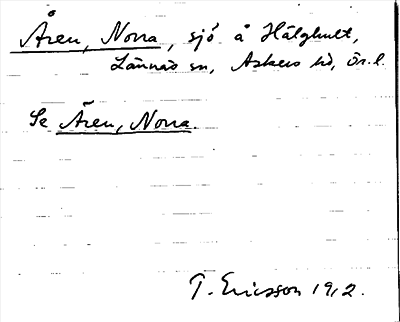 Åren, Norra, sjö å Hälghult,
Lännäs sn, Askers hd, Ör. l.
Se Ären, Norra.
T. Ericsson 1912.